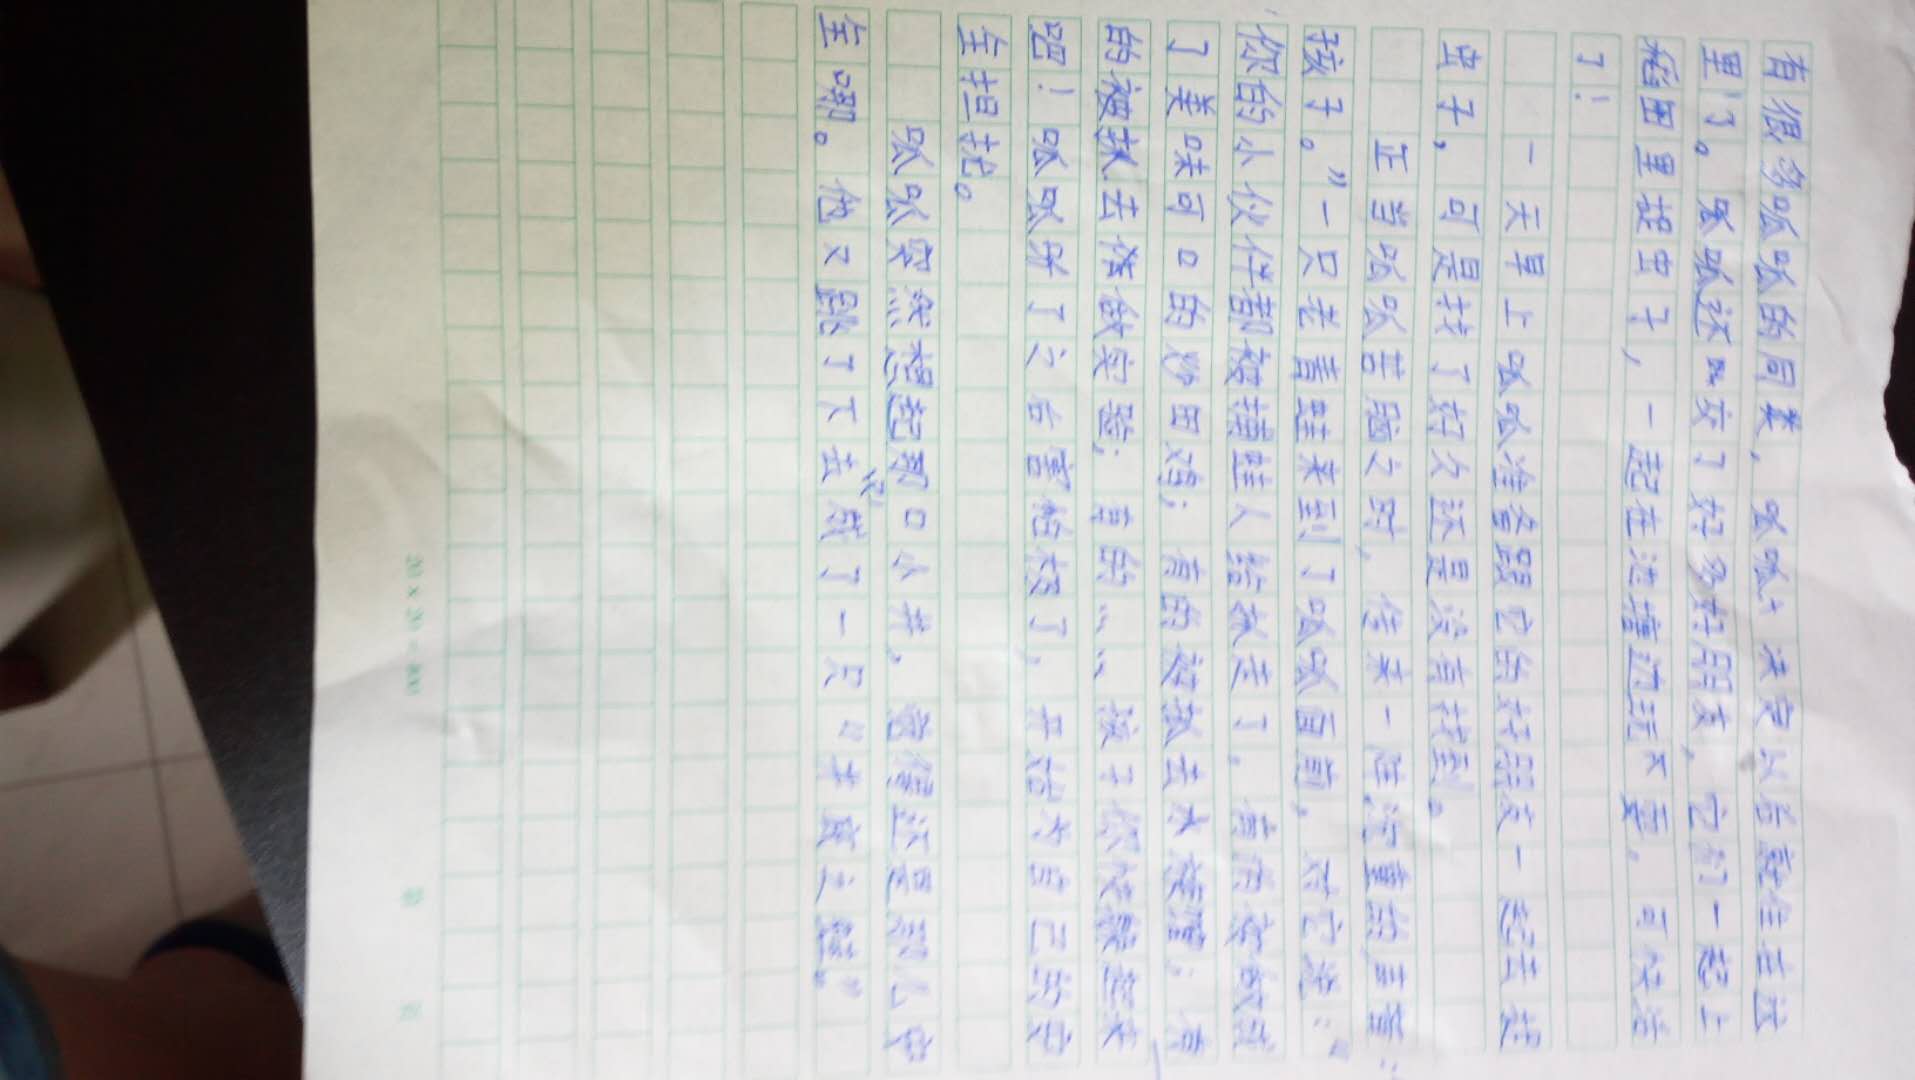 有很多呱呱的同类，呱呱决定以后就住在这
里了。呱呱还交了好多好朋友，它们一起上
稻田里捉虫子，一起在池塘边玩耍。可快活
了！
一天早上呱呱准备跟它的好朋友一起去捉
虫子，可是找了好久还是没有找到。
正当呱呱苦恼之时，传来一阵沉重的声音：“
孩子。”一只老青蛙来到了呱呱面前，对它说：“
你的小伙伴都被捕蛙人给抓走了，有的被做成
了美味可口的炒田鸡；有的被抓去；有
的被抓去做实验；有的……孩子你快躲起来
吧！呱呱听了之后害怕极了，开始为自己的安
全担忧。
呱呱突然想起那口小井，觉得还是那儿安
全呢。他又跳了下去，成了一只“井底之蛙”
20×20=400
第 页